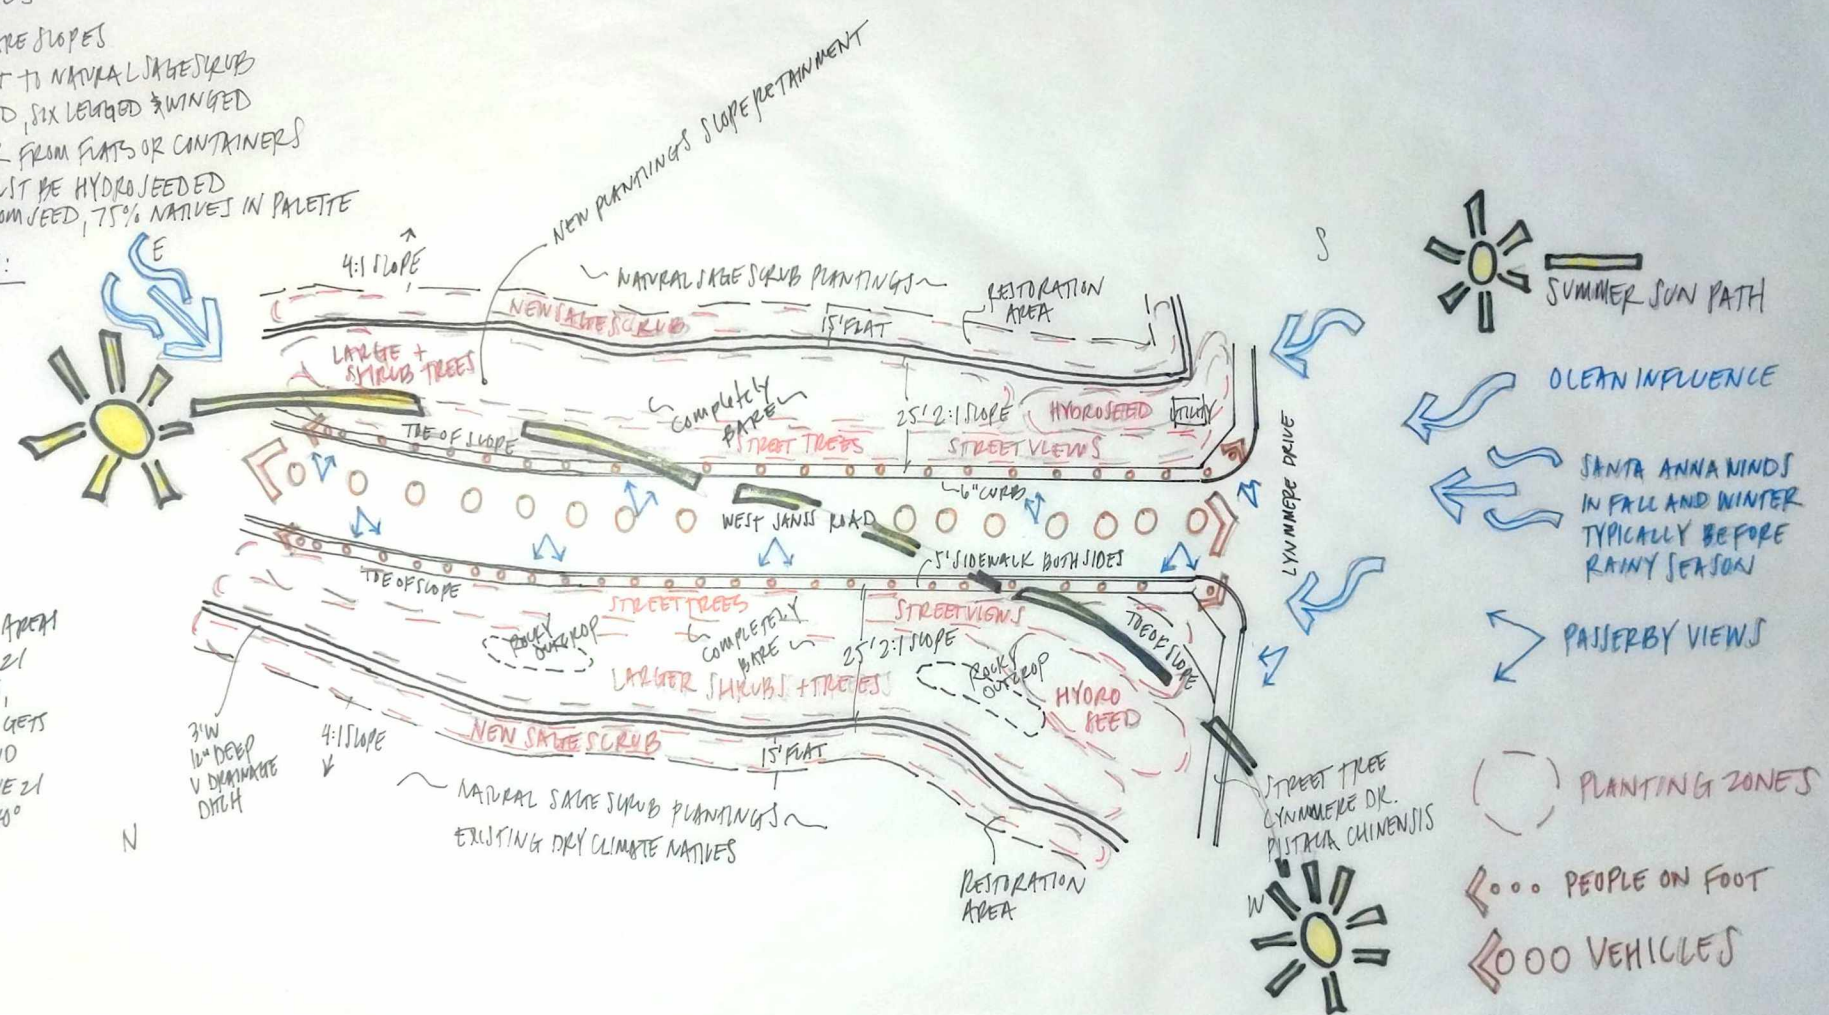 RE SLOPES
T TO NATURAL SAGE SCRUB
D, SIX LEGGED & WINGED
FROM FLATS OR CONTAINERS
ST BE HYDROSEEDED
OM SEED, 75% NATIVES IN PALETTE
:
E
4:1 SLOPE
NEW PLANTINGS SLOPE RETAINMENT
~ NATURAL SAGE SCRUB PLANTINGS ~
RESTORATION
AREA
NEW SAGE SCRUB
15' FLAT
LARGE +
SHRUB TREES
~ COMPLETELY
BARE ~
25' 2:1 SLOPE
HYDROSEED
UTILITY
TOE OF SLOPE
STREET TREES
STREET VIEWS
~6" CURB
WEST JANSS ROAD
LYNNMERE DRIVE
5' SIDEWALK BOTH SIDES
TOE OF SLOPE
STREET TREES
STREET VIEWS
TOE OF SLOPE
ROCKY
OUTCROP
~ COMPLETELY
BARE ~
25' 2:1 SLOPE
ROCKY
OUTCROP
LARGER SHRUBS + TREES
HYDRO
SEED
NEW SAGE SCRUB
15' FLAT
3'W
12" DEEP
V DRAINAGE
DITCH
4:1 SLOPE
~ NATURAL SAGE SCRUB PLANTINGS ~
EXISTING DRY CLIMATE NATIVES
RESTORATION
AREA
STREET TREE
LYNNMERE DR.
PISTACIA CHINENSIS
N
W
S
AREAS
21
GETS
E 21
SUMMER SUN PATH
OCEAN INFLUENCE
SANTA ANNA WINDS
IN FALL AND WINTER
TYPICALLY BEFORE
RAINY SEASON
PASSERBY VIEWS
PLANTING ZONES
PEOPLE ON FOOT
VEHICLES